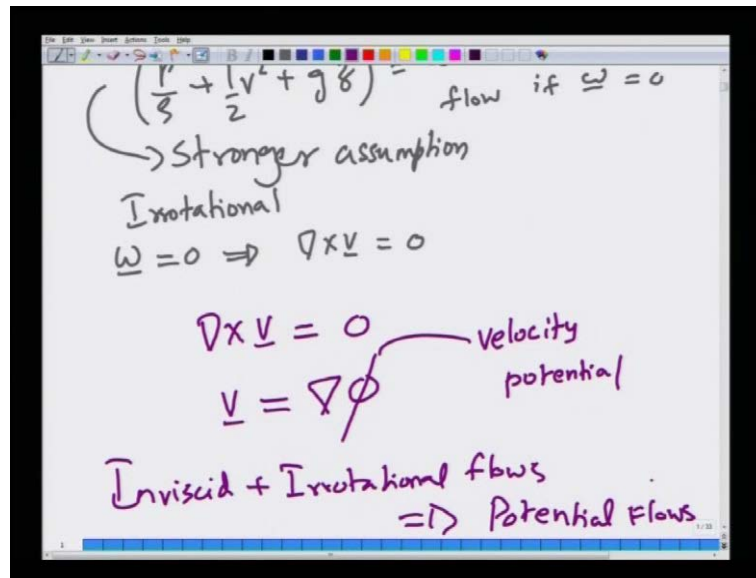 File Edit View Insert Actions Tools Help
(p/ρ + 1/2 v² + gz) =
flow if ω = 0
→ Stronger assumption
Irrotational
ω = 0 ⇒ ∇×v = 0
∇×v = 0
velocity
potential
v = ∇φ
Inviscid + Irrotational flows
⇒ Potential Flows
1